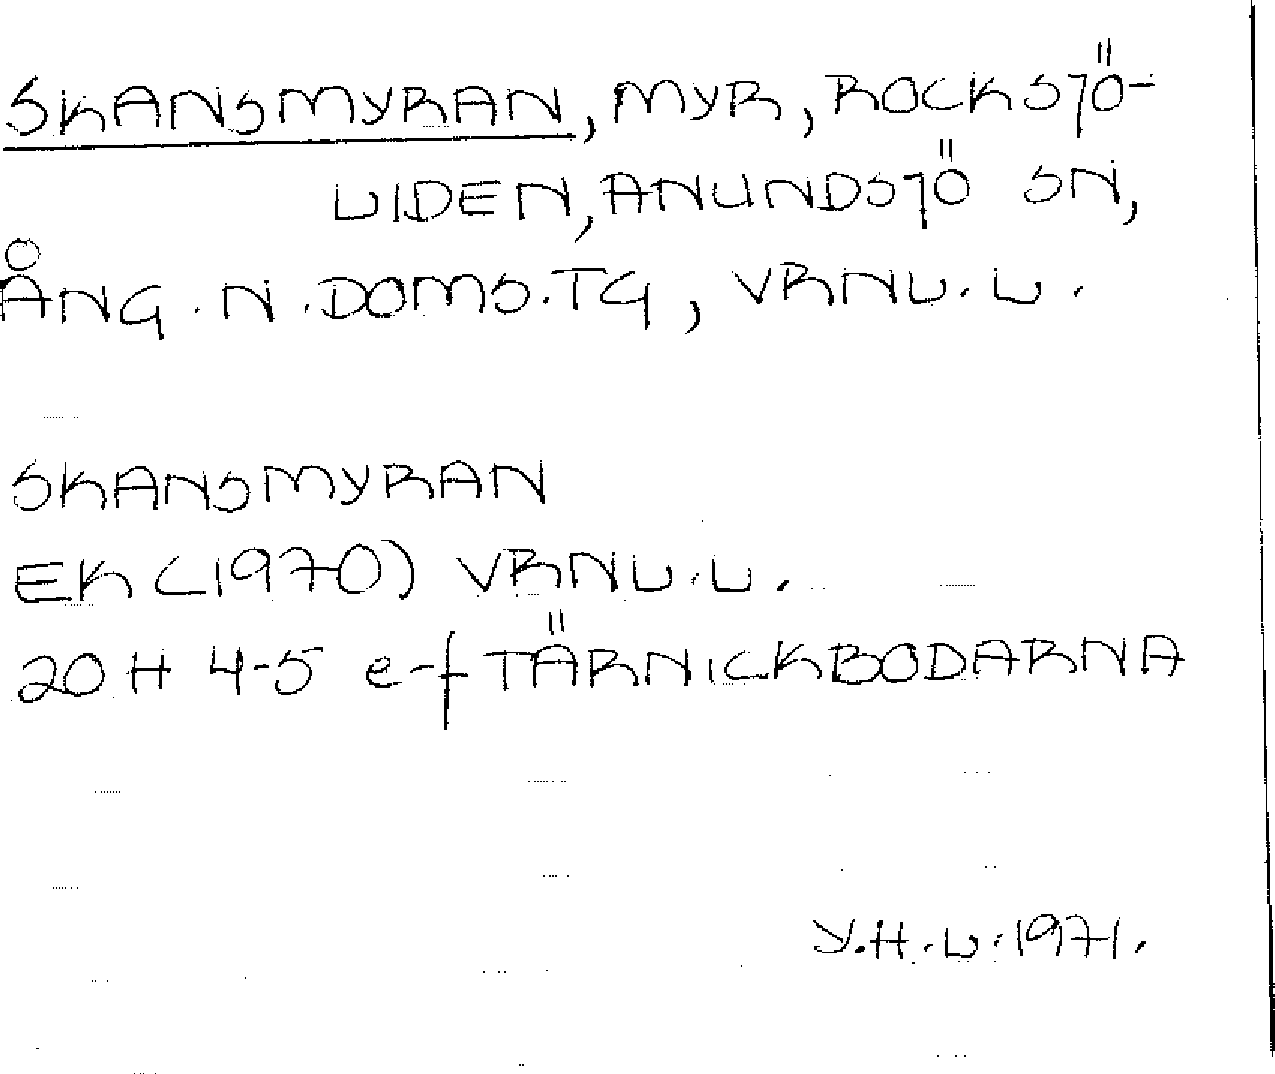 SKANSMYRAN, MYR, ROCKSJÖ-
LIDEN, ANUNDSJÖ SN,
ÅNG. N. DOMS.TG, VRNL. L.
SKANSMYRAN
EK (1970) VRNL. L.
20 H 4-5 e-f TÄRNICKBODARNA
Y.H.L. 1971.